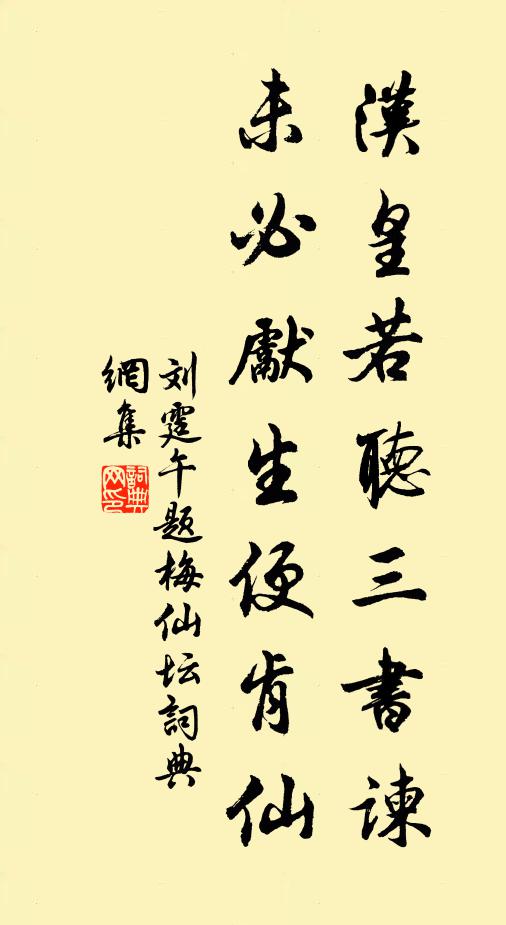 漢皇若聽三書諫
未必獻生便肯仙
刘霆午题梅仙坛詞典
網集
詞典
网印